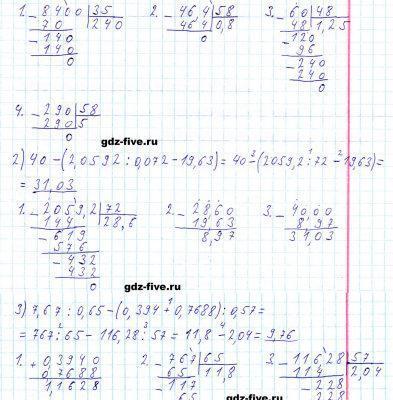 1. - 8400 | 35    2. - 46,4 | 58    3. - 60 | 48
70 | 240    46 4 | 0,8    48 | 1,25
- 140    0    - 120
140    96
0    - 240
240
0
4. - 290 | 58
290 | 5
0
gdz-five.ru
2) 40 - (2,0592 : 0,072 - 19,63) = 40 - (2059,2 : 72 - 19,63) =
= 31,03
1. - 2059,2 | 72    2. - 28,60    3. - 40,00
144 | 28,6    19,63    8,97
- 619    8,97    31,03
576
- 432
432
0
gdz-five.ru
3) 7,67 : 0,65 - (0,394 + 0,7688) : 0,57 =
= 767 : 65 - 116,28 : 57 = 11,8 - 2,04 = 9,76
1. + 0,3940    2. - 767 | 65    3. - 116,28 | 57
0,7688    65 | 11,8    114 | 2,04
1,1628    - 117    - 228
65    228
gdz-five.ru